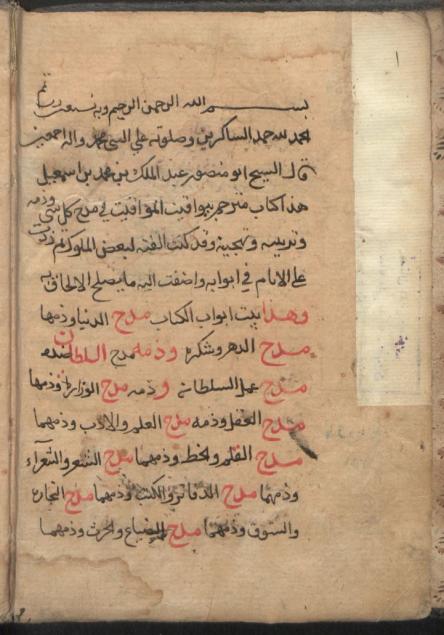 بسم الله الرحمن الرحيم وبه نستعين
الحمد لله حمد الشاكرين وصلوته على النبي محمد واله اجمعين
قال الشيخ ابو منصور عبد الملك بن محمد بن اسمعيل
هذا كتاب مترجم بيواقيت المواقيت في مدح كل شي وذمه
وتزيينه وتهجينه وقد كنت الفته لبعض الملوك ثم زدت
على الايام في ابوابه واضفت اليه ما يصلح الالحاق به
وهذا ثبت ابواب الكتاب مدح الدنيا وذمها
مدح الدهر وشكره وذمه مدح السلطان
مدح عمل السلطان وذمه مدح الوزارة وذمها
مدح العقل وذمه مدح العلم والادب وذمهما
مدح القلم والخط وذمهما مدح الشعر والشعراء
وذمهما مدح الدفاتر والكتب وذمهما مدح التجارة
والسوق وذمهما مدح الضياع والحرث وذمهما
١